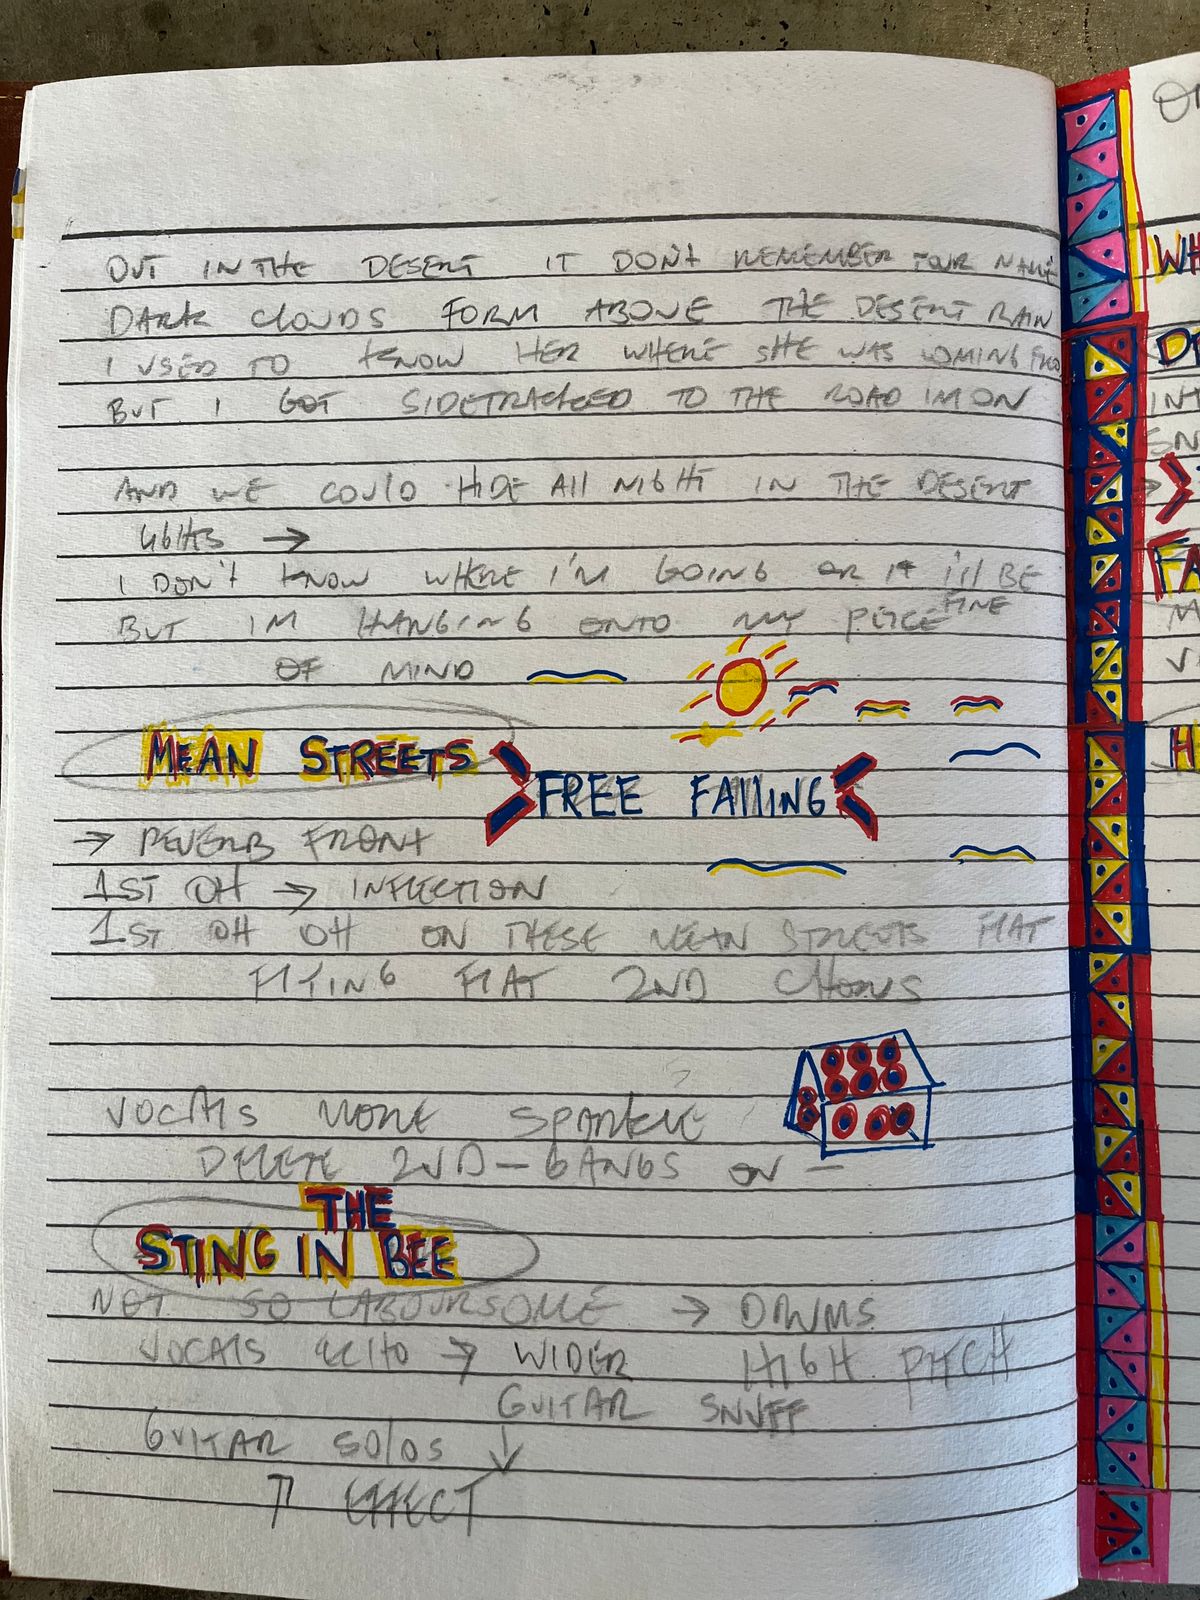 OUT IN THE DESERT IT DON'T REMEMBER YOUR NAME
DARK CLOUDS FORM ABOVE THE DESERT RAIN
I USED TO KNOW HER WHERE SHE WAS COMING FRO
BUT I GOT SIDETRACKED TO THE ROAD IM ON
AND WE COULD HIDE All NIGHT IN THE DESERT
LIGHTS →
I DON'T KNOW WHERE I'M GOING OR IF I'll BE
FINE
BUT IM HANGING ONTO MY PEICE
OF MIND
MEAN STREETS
FREE FAlliNG
→ REVERB FRONT
1ST OH → INFLECTION
1ST OH OH ON THESE MEAN STREETS FlAT
FlYING FlAT 2ND CHORUS
VOCAlS MORE SPARKLE
DELETE 2ND - GANGS ON -
THE
STING IN BEE
NOT SO LABOURSOME → DRUMS
VOCAlS ECHO → WIDER HIGH PITCH
GUITAR SNUFF
GUITAR SOlOS ↓
EFFECT
OF
WH
DE
INT
SN
FA
M
H